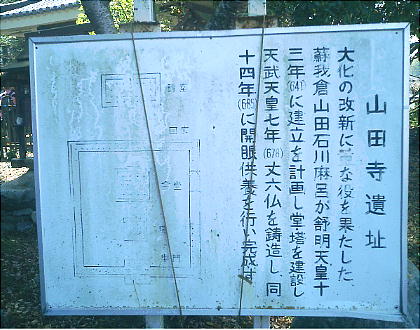 山田寺遺址
大化の改新に重な役を果たした
蘇我倉山田石川麻呂が舒明天皇十
三年(641)に建立を計画し堂塔を建設し
天武天皇七年(678)丈六仏を鋳造し同
十四年(685)に開眼供養を行い完成
講堂
回廊
金堂
塔
中門